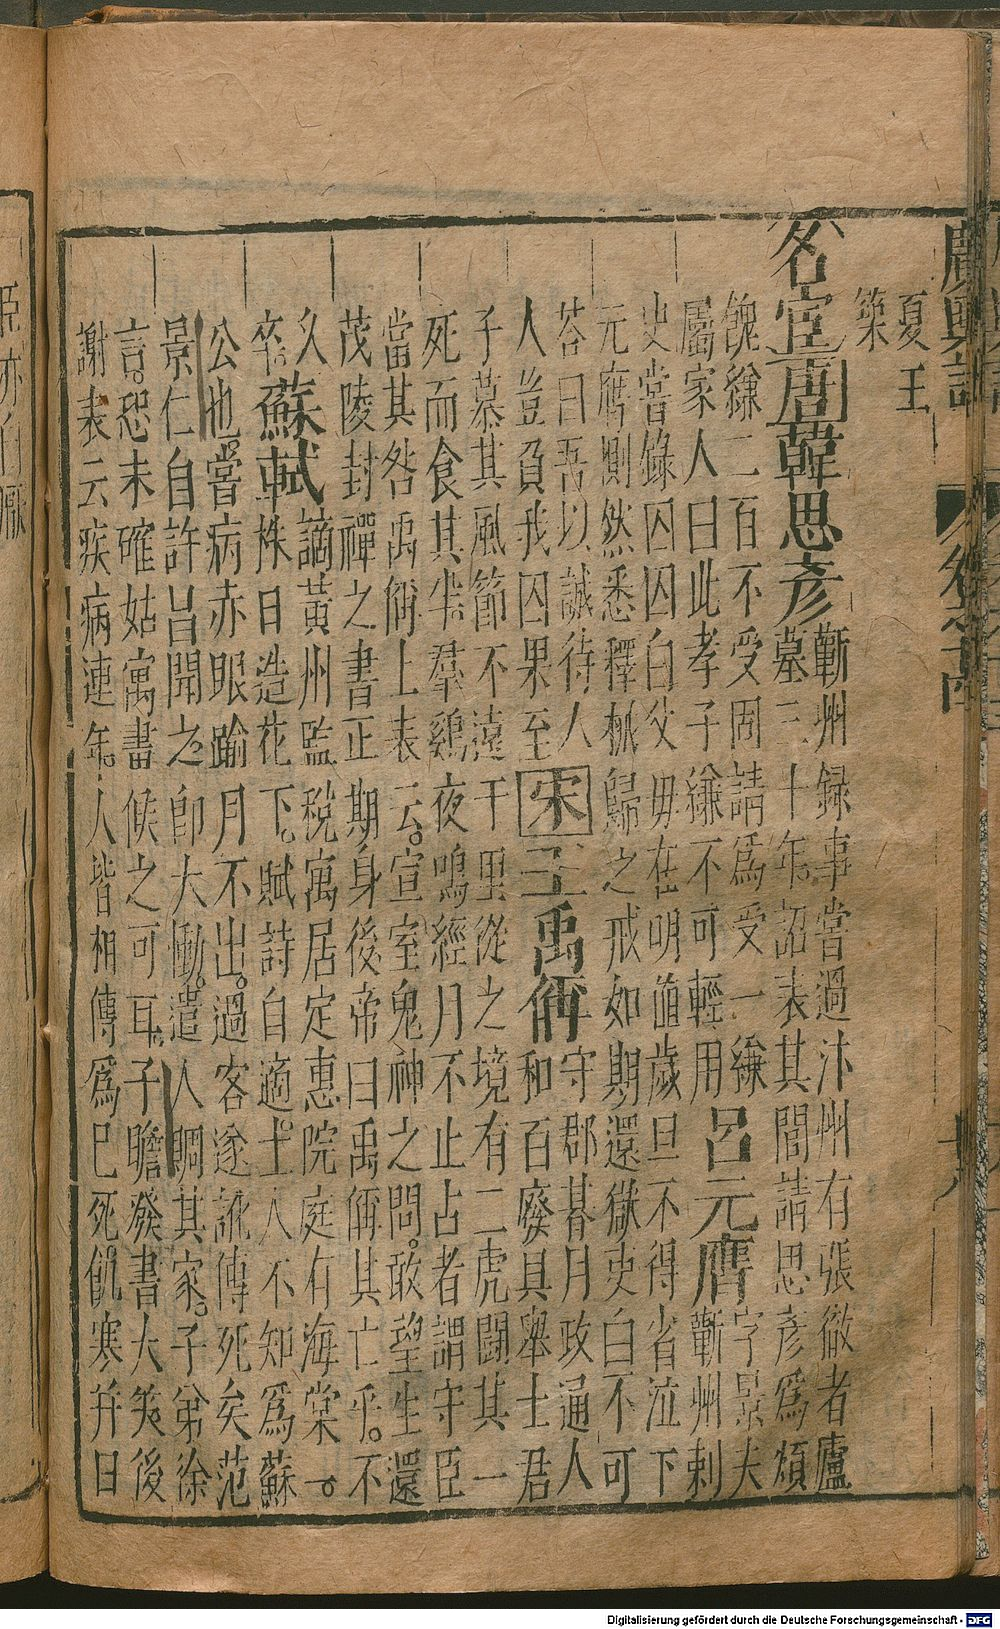 廣輿記
夏王
築
名宦 周 韓思彥 蘄州録事嘗過汴州有張徹者廬
墓三十年詔表其閭請思彥爲頌
餽縑二百不受固請爲受一縑
屬家人曰此孝子縑不可輕用 呂元膺 字景夫
蘄州刺
史嘗錄囚囚白父毋在明値歲旦不得省泣下
元膺惻然悉釋械歸之戒如期還獄吏白不可
荅曰吾以誠待人
人豈負我囚果至 宋 王禹偁 守郡朞月政通人
和百廢具舉士君
子慕其風節不遠千里從之境有二虎鬪其一
死而食其半羣鷄夜鳴經月不止占者謂守臣
當其咎禹偁上表云宣室鬼神之問敢望生還
茂陵封禪之書正期身後帝曰禹偁其亡乎不
久
卒 蘇軾 謫黃州監稅寓居定惠院庭有海棠一
株日造花下賦詩自適土人不知爲蘇
公也嘗病赤眼踰月不出過客遂訛傳死矣范
景仁自許昌聞之卽大慟遣人賙其家子弟徐
言恐未確姑寓書候之可耳子瞻發書大笑後
謝表云疾病連年人皆相傳爲巳死飢寒幷日
Digitalisierung gefördert durch die Deutsche Forschungsgemeinschaft - DFG